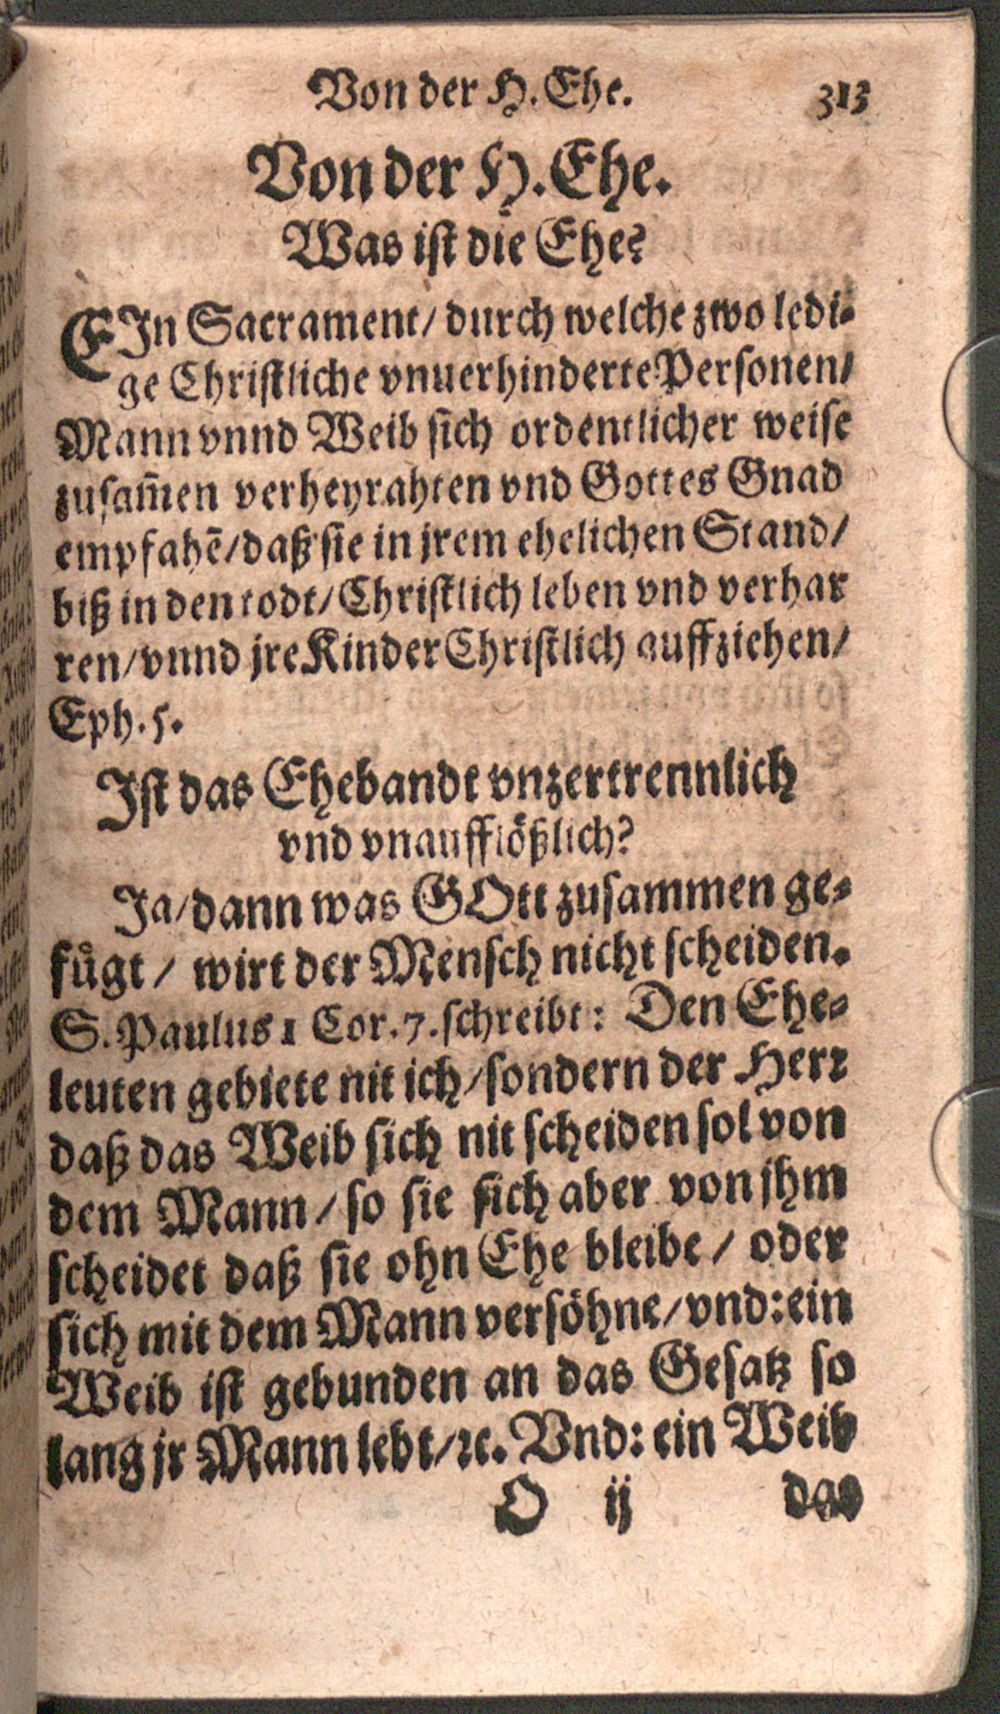 Von der H. Ehe. 313
Von der H. Ehe.
Was ist die Ehe?
EIn Sacrament/ durch welche zwo ledi-
ge Christliche vnuerhinderte Personen/
Mann vnnd Weib sich ordentlicher weise
zusam̃en verheyrahten vnd Gottes Gnad
empfahẽ/daß sie in jrem ehelichen Stand/
biß in den todt/Christlich leben vnd verhar
ren/vnnd jre Kinder Christlich auffziehen/
Eph. 5.
Ist das Ehebandt vnzertrennlich
vnd vnaufflößlich?
Ja/dann was GOtt zusammen ge-
fügt / wirt der Mensch nicht scheiden.
S. Paulus 1 Cor. 7. schreibt: Den Ehe-
leuten gebiete nit ich/sondern der Herr
daß das Weib sich nit scheiden sol von
dem Mann/so sie sich aber von jhm
scheidet daß sie ohn Ehe bleibe / oder
sich mit dem Mann versöhne/vnd: ein
Weib ist gebunden an das Gesatz so
lang jr Mann lebt/ꝛc. Vnd: ein Weib
O ij das